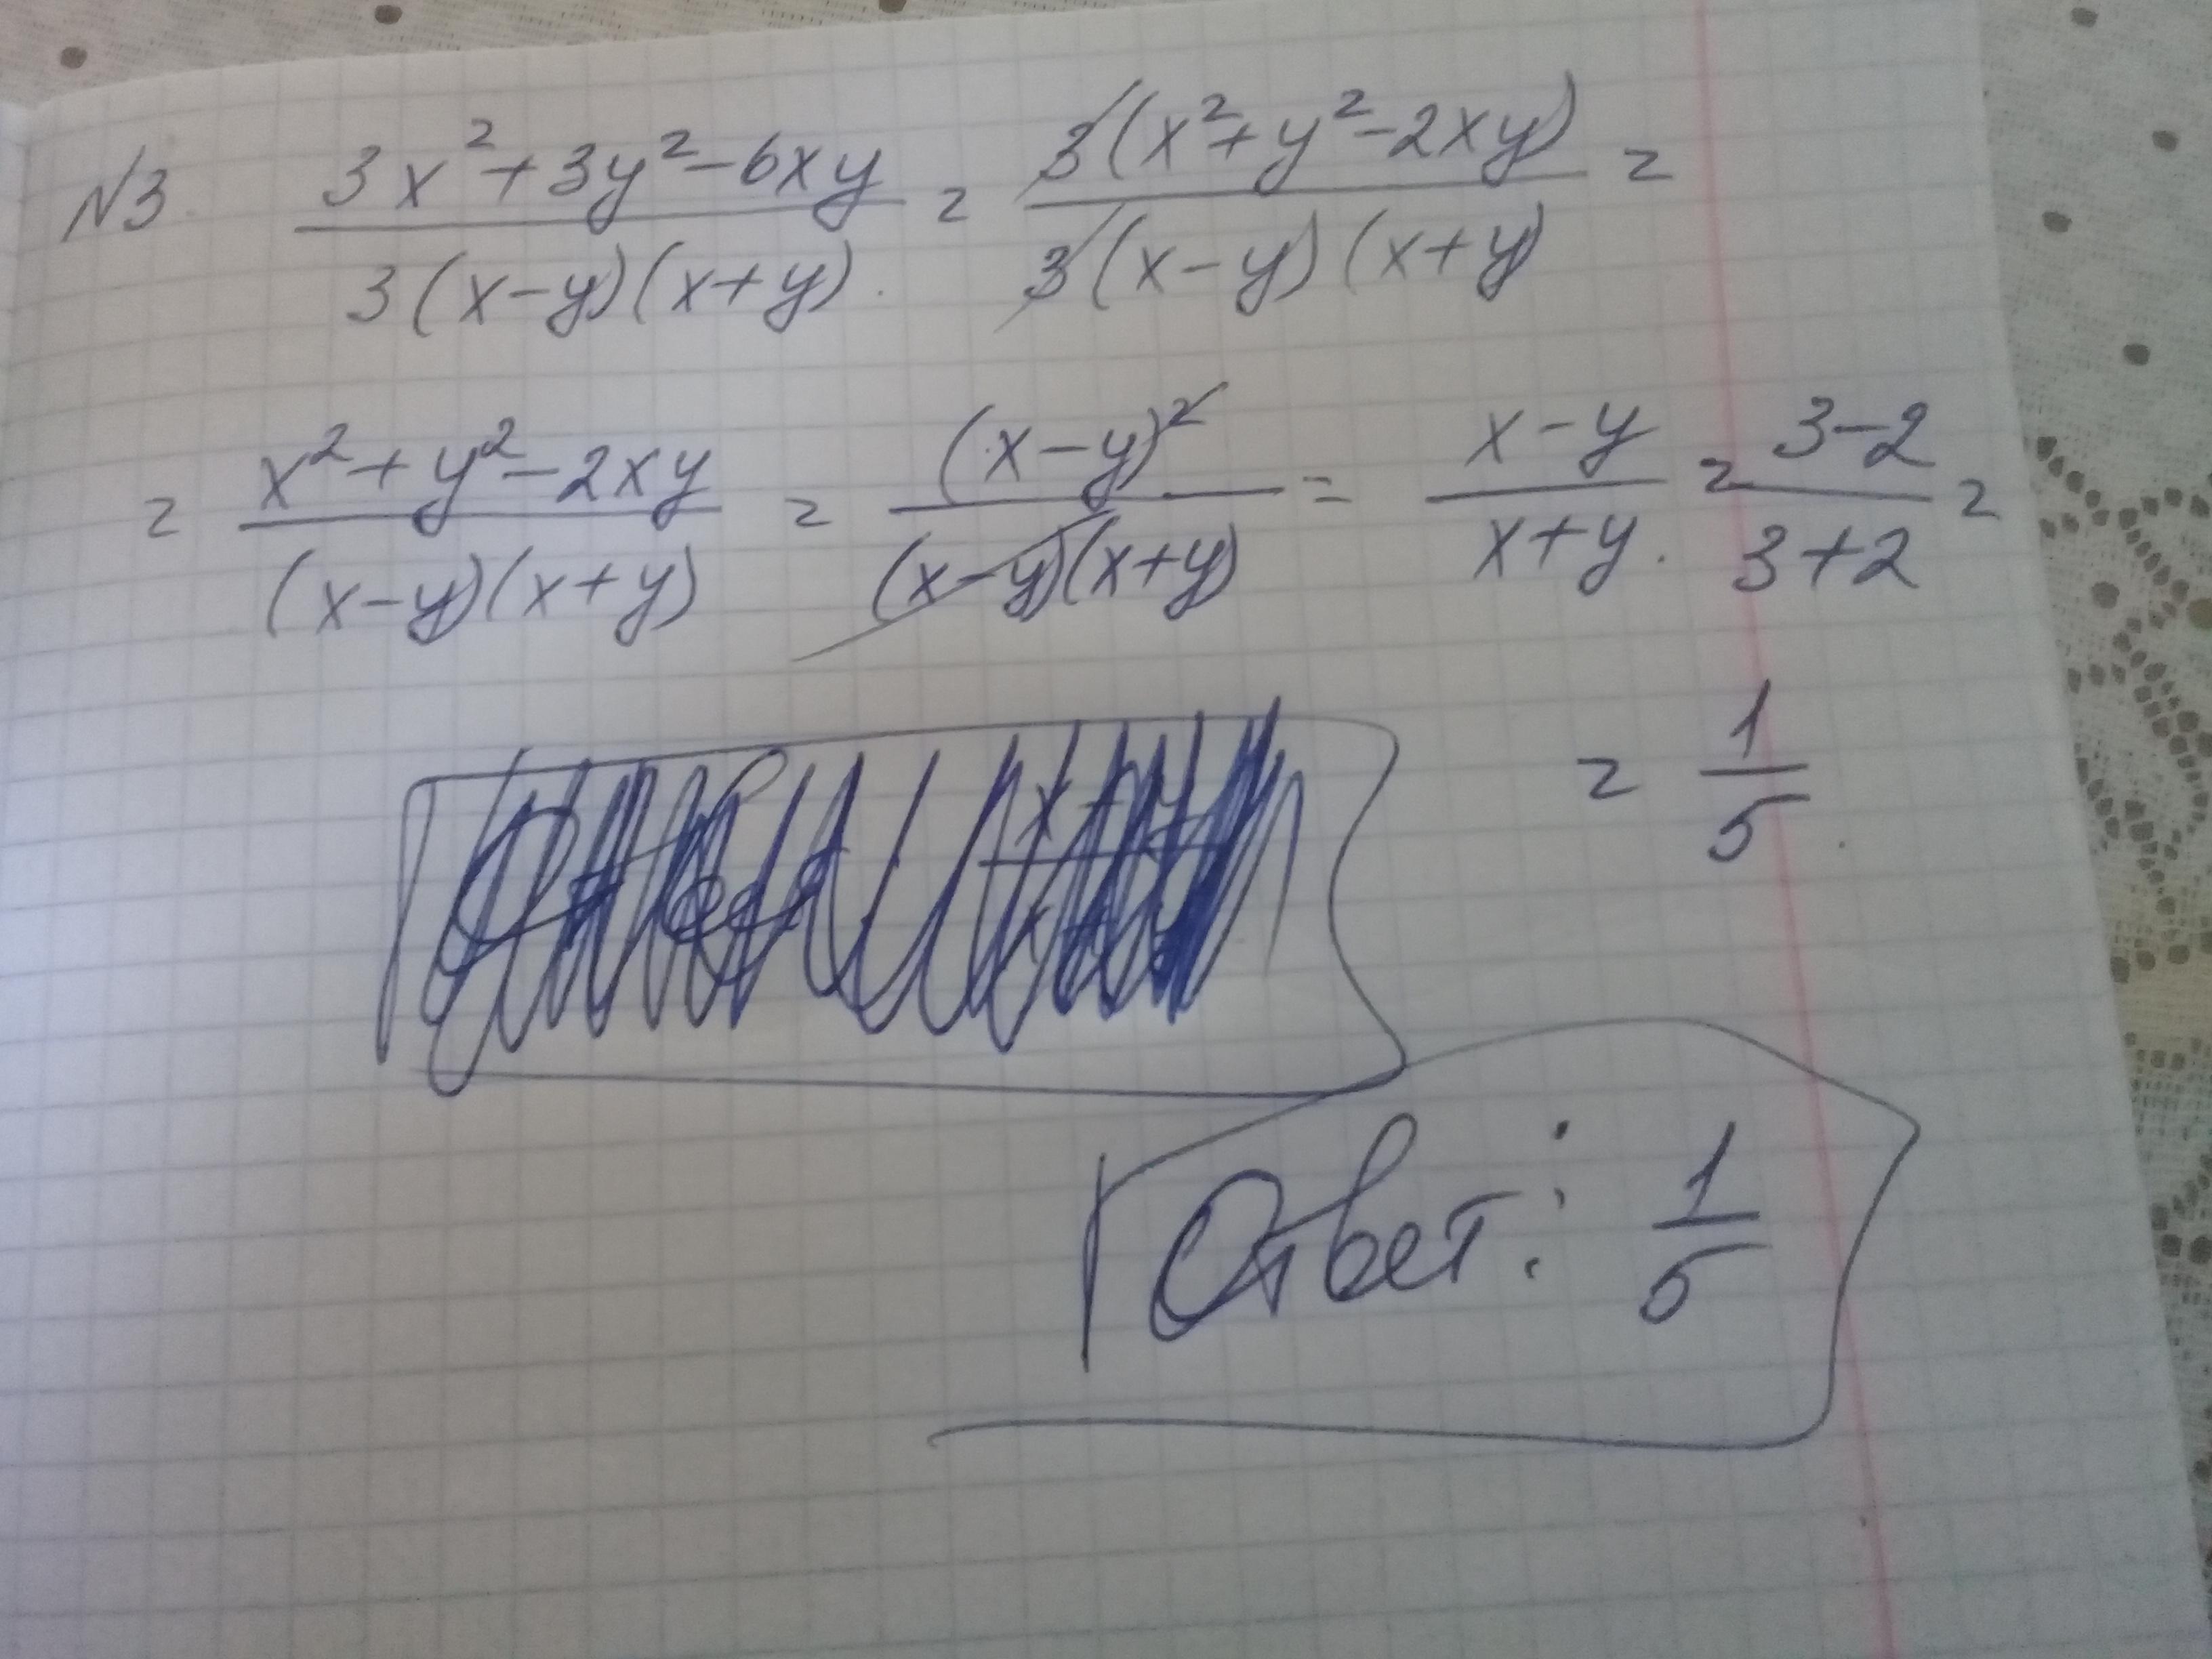 N3. (3x²+3y²-6xy)/(3(x-y)(x+y)) = (3(x²+y²-2xy))/(3(x-y)(x+y)) =
= (x²+y²-2xy)/((x-y)(x+y)) = (x-y)²/((x-y)(x+y)) = (x-y)/(x+y) = (3-2)/(3+2) =
= 1/5.
Ответ: 1/5